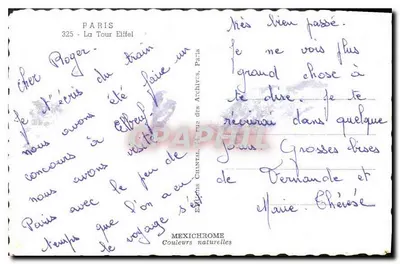 PARIS
325 - La Tour Eiffel
Cher Roger.
Je t'écris du train
nous avons été faire un
concours à
nous avons visité
Paris avec le peu de
temps que l'on a eu
le voyage s'est
très bien passé.
Je ne vous plus
grand chose à
te dire. Je te
revoirai dans quelque
jours. Grosses bises
de Fernande et
Marie. Thérèse
Editions CHANTAL, rue des Archives, Paris
MEXICHROME
Couleurs naturelles
CPAPHIL